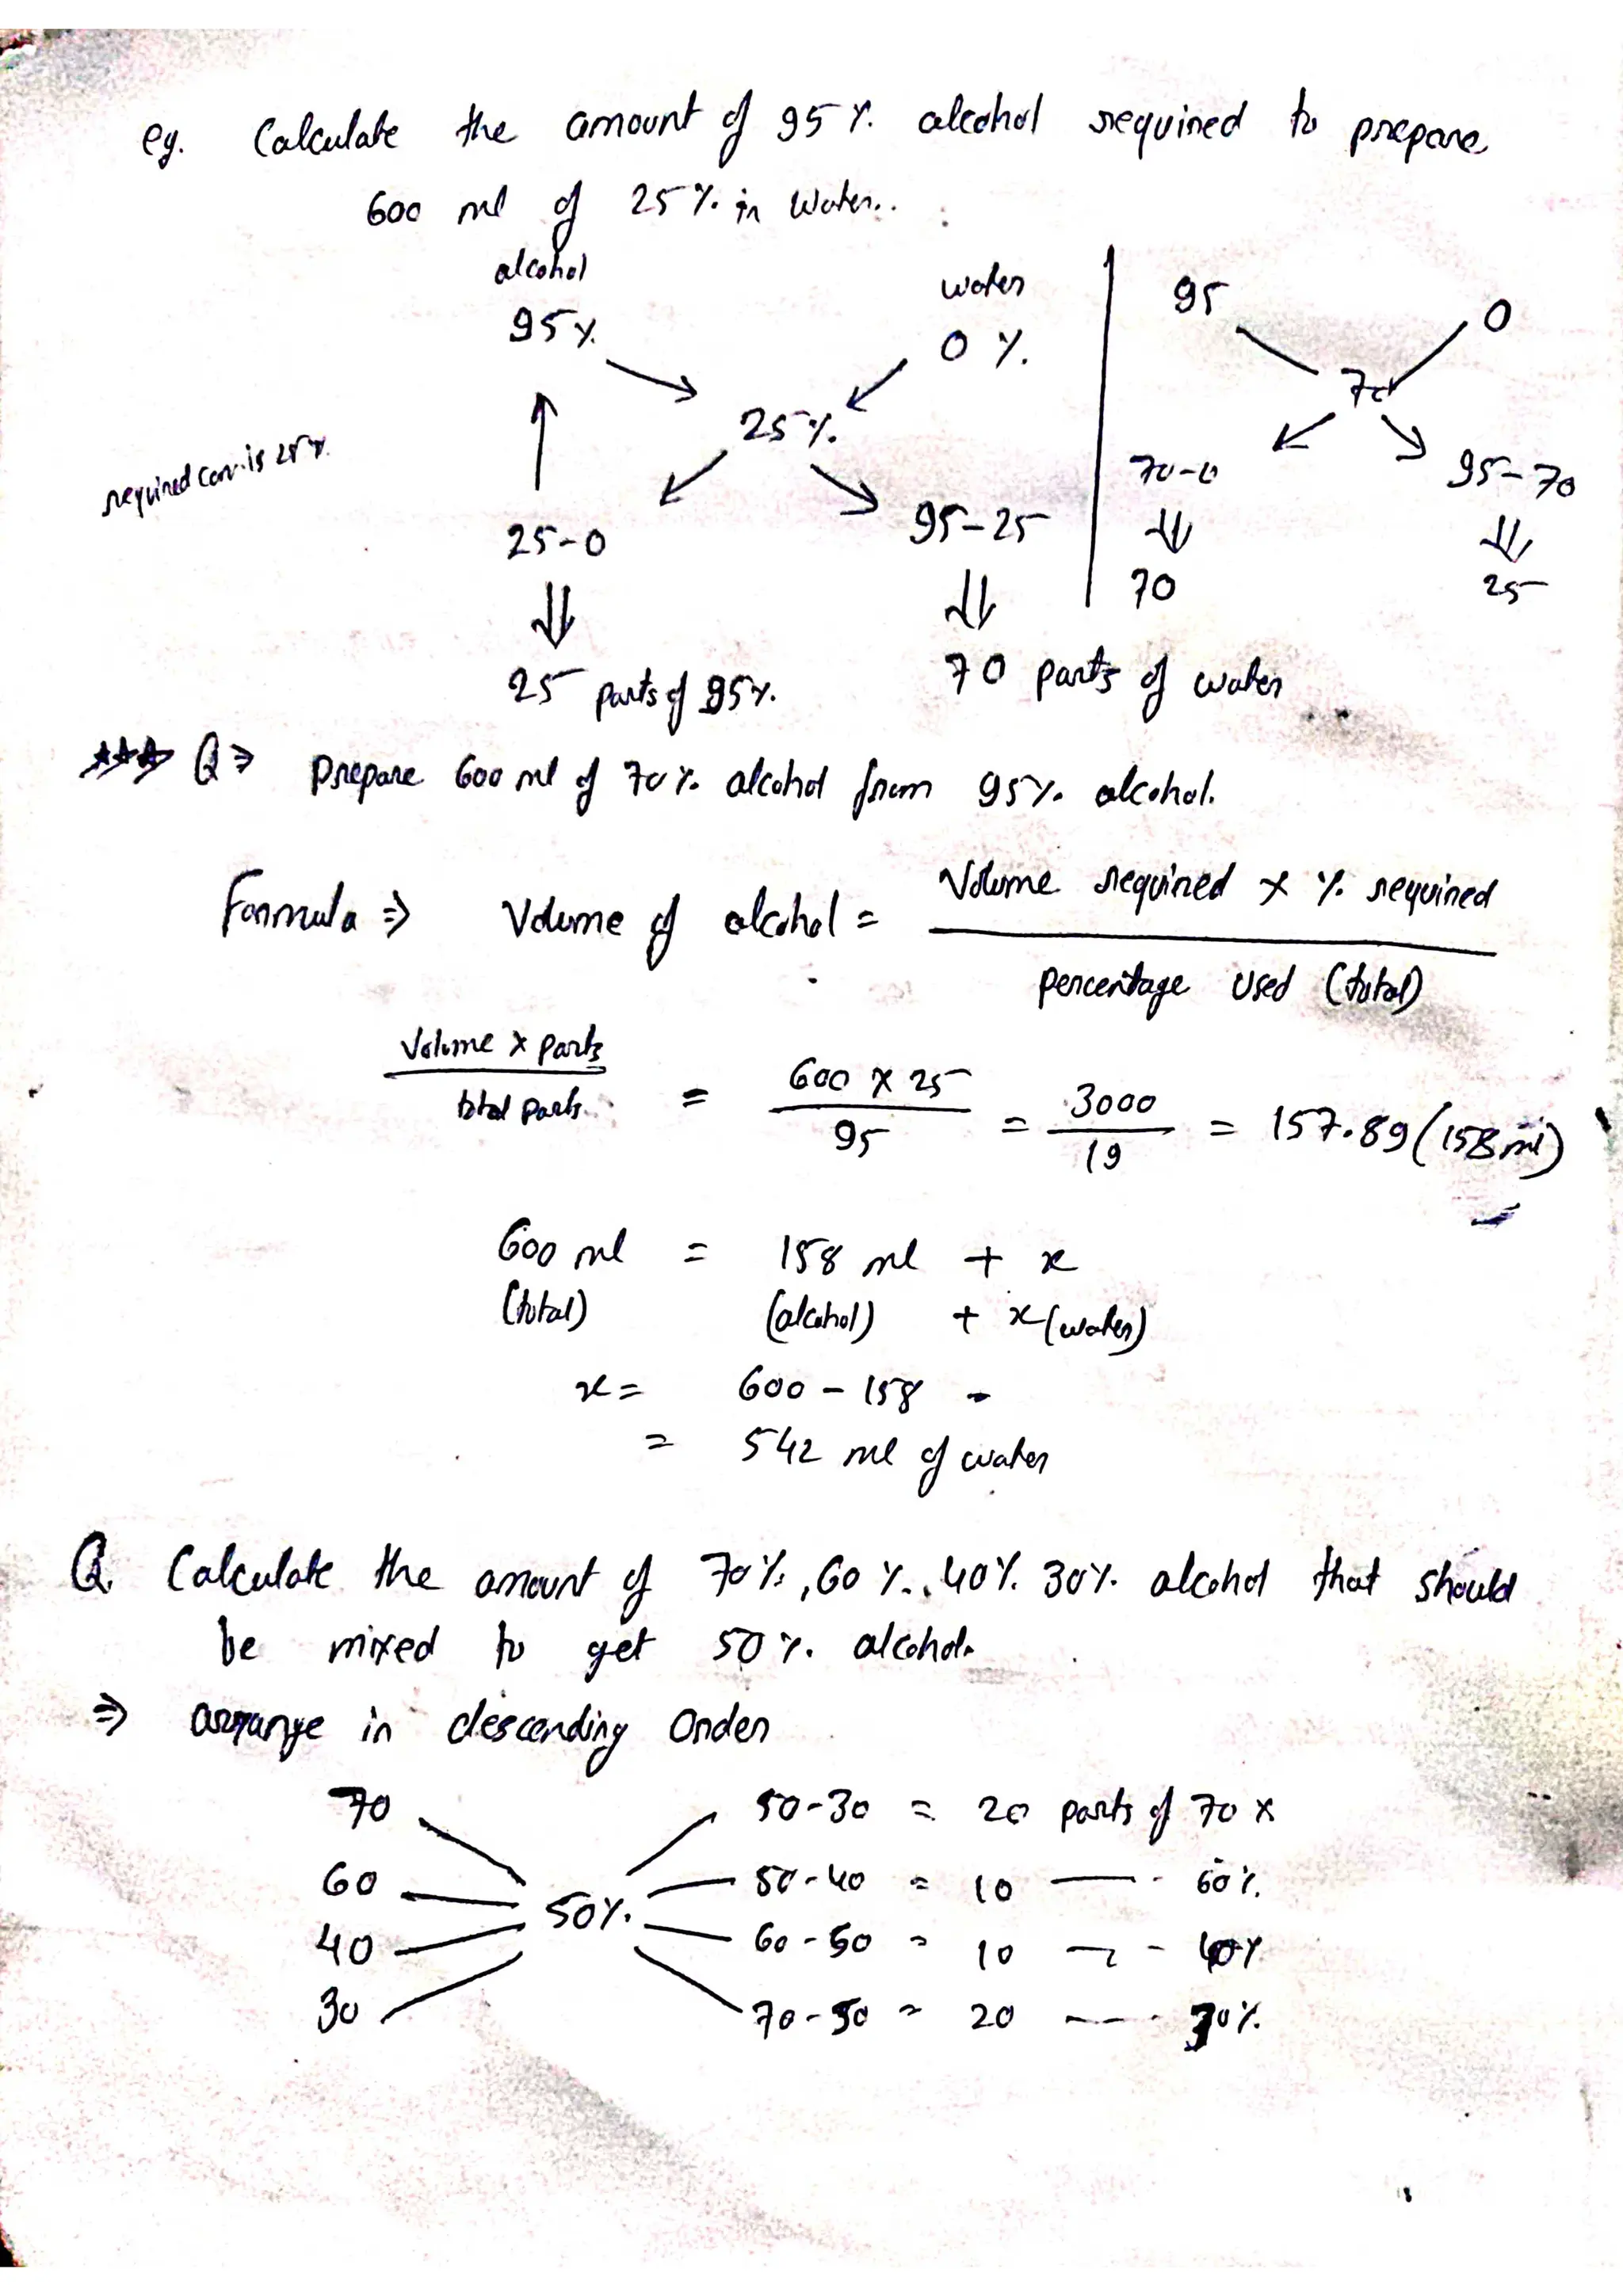 eg. Calculate the amount of 95% alcohol required to prepare
600 ml of 25% in water..
alcohol
95%
water
0 %
25%
required con. is 25%
25-0
95-25
25 parts of 95%
70 parts of water
95
0
70
70-0
95-70
70
25
Q ⇒ Prepare 600 ml of 70% alcohol from 95% alcohol.
Formula ⇒ Volume of alcohol = Volume required x % required
percentage used (total)
Volume x parts
total parts
= 600 x 25 / 95 = 3000 / 19 = 157.89 (158 ml)
600 ml = 158 ml + x
(total) (alcohol) + x (water)
x = 600 - 158 -
= 542 ml of water
Q. Calculate the amount of 70%, 60%, 40% 30% alcohol that should
be mixed to get 50% alcohol.
⇒ arrange in descending order
70 50-30 = 20 parts of 70 x
60 50-40 = 10 — - 60%
50%
40 60-50 = 10 — - 40%
30 70-50 = 20 --- 30%